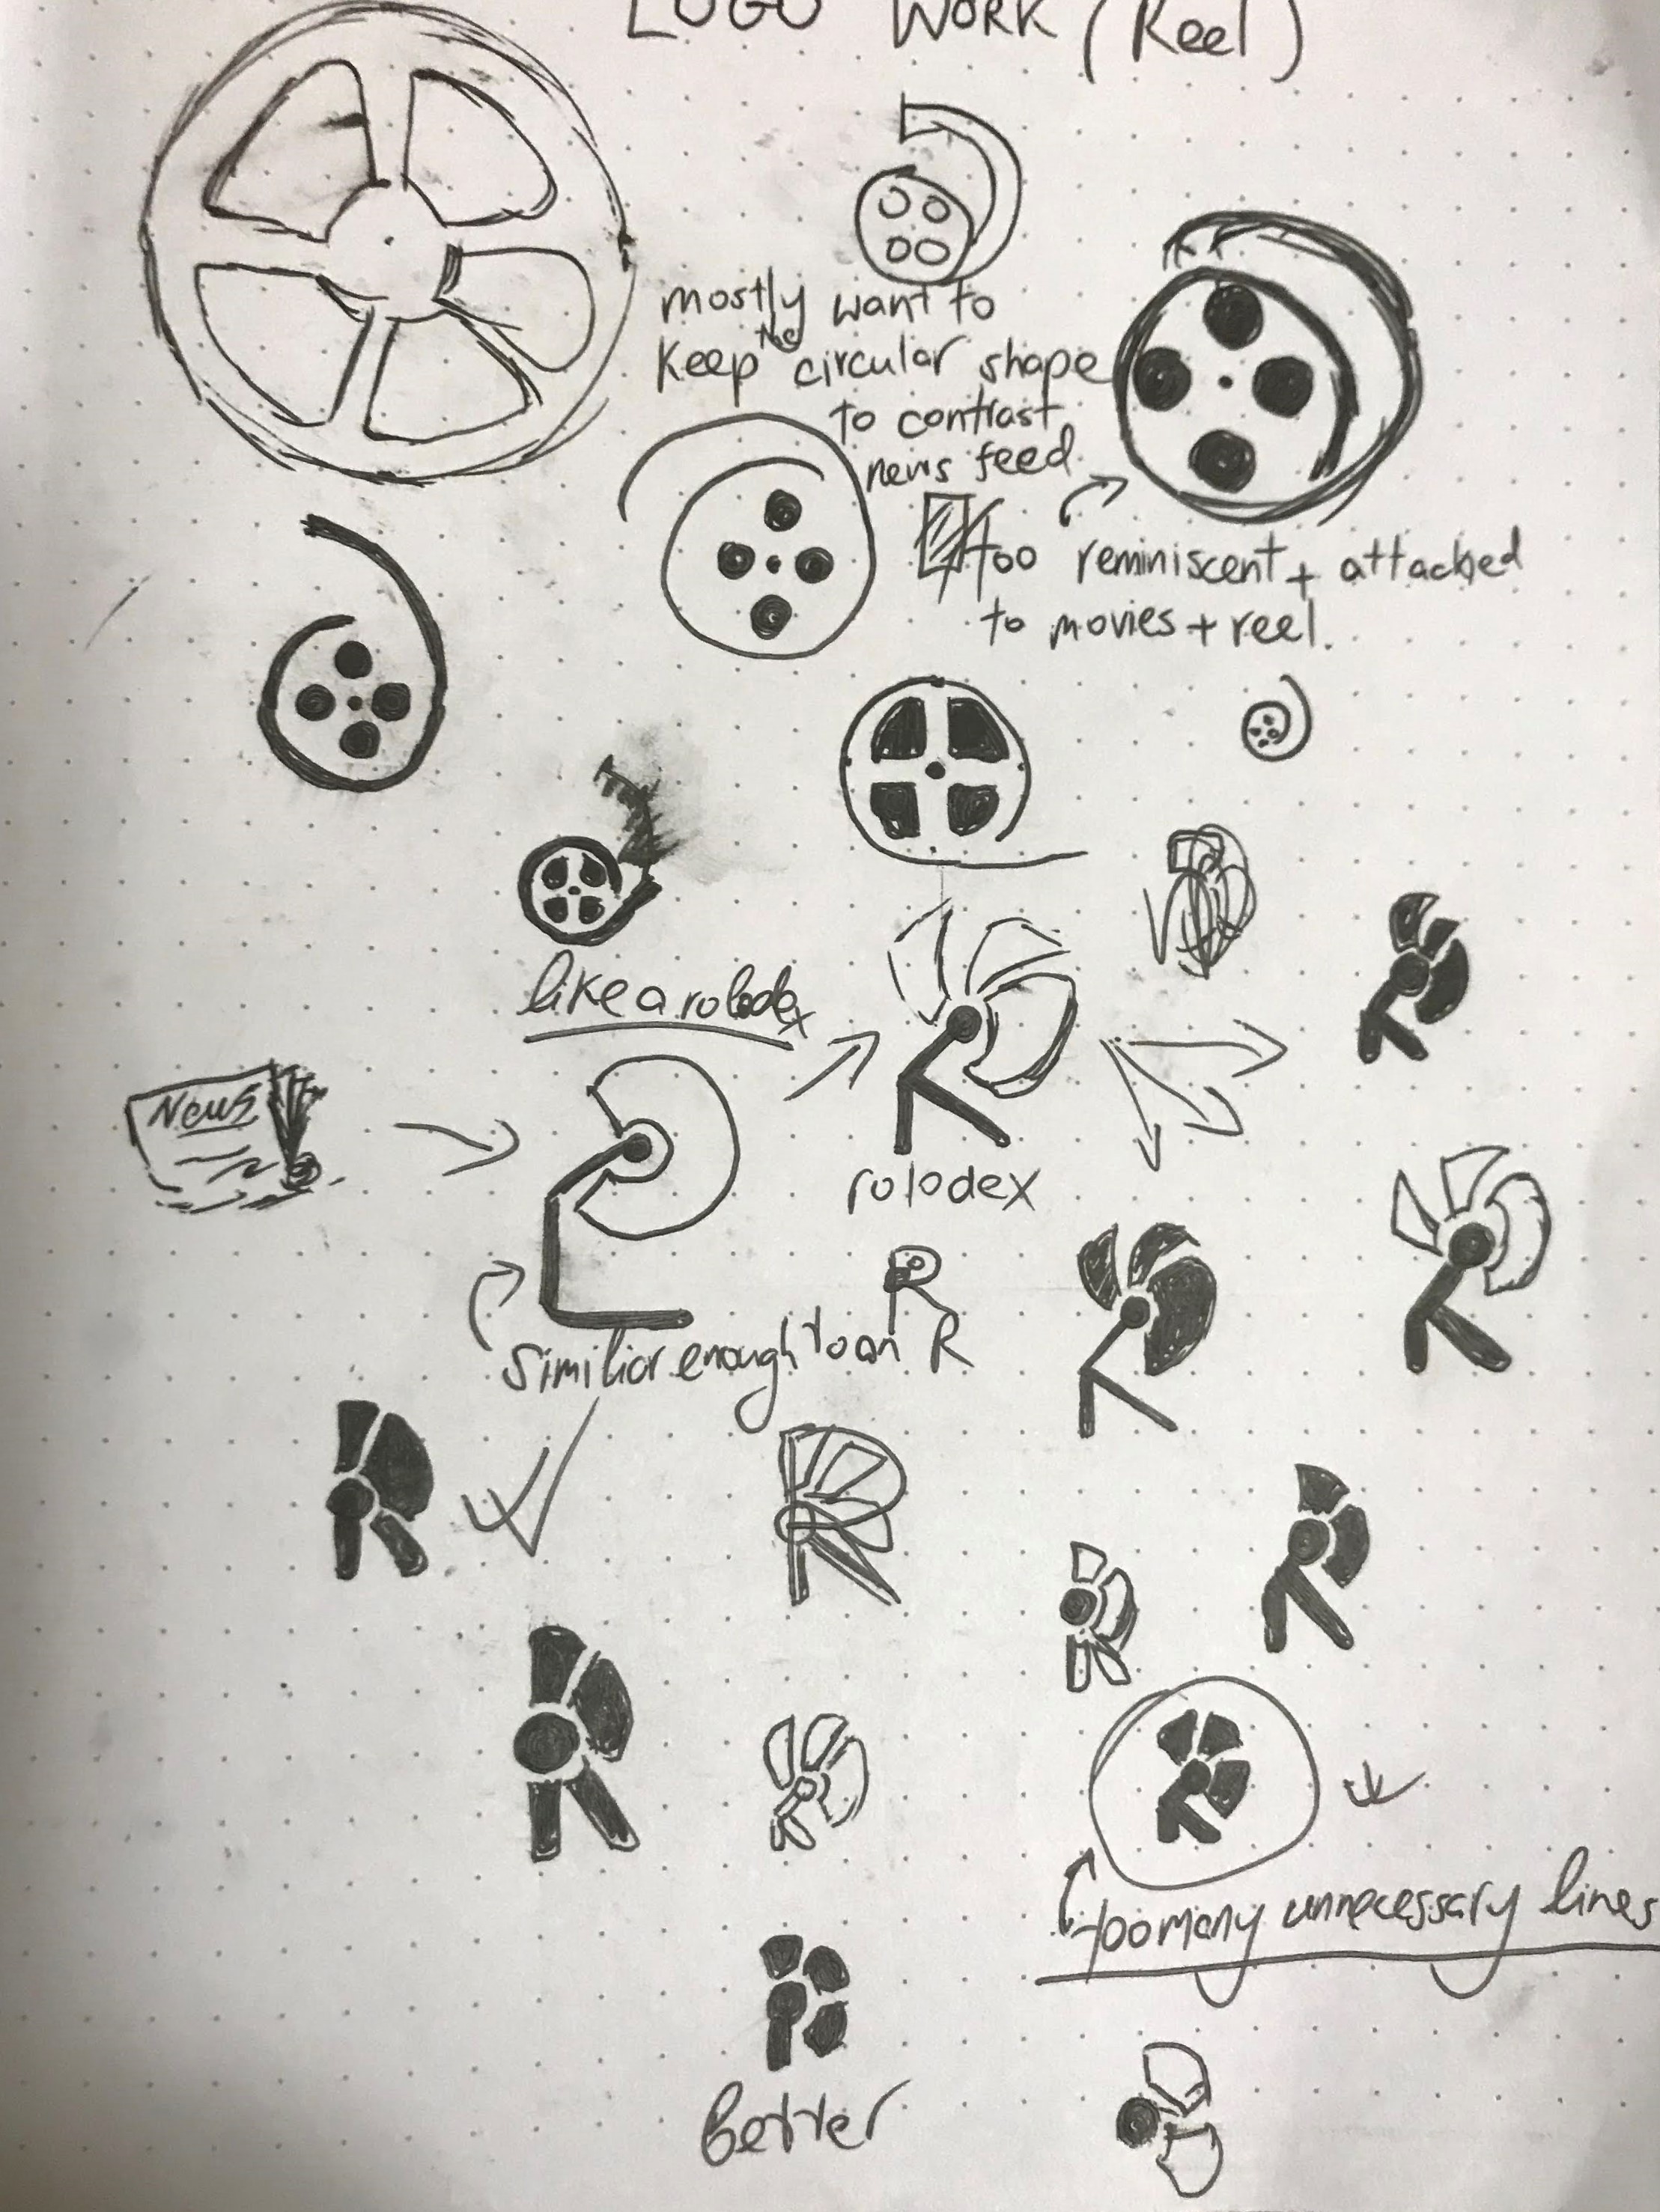 LOGO WORK (Reel)
mostly want to
keep the circular shape
to contrast
news feed.
too reminiscent + attached
to movies + reel.
like a rolodex
News
rolodex
R
similior enough to an R
too many unnecessary lines
Better